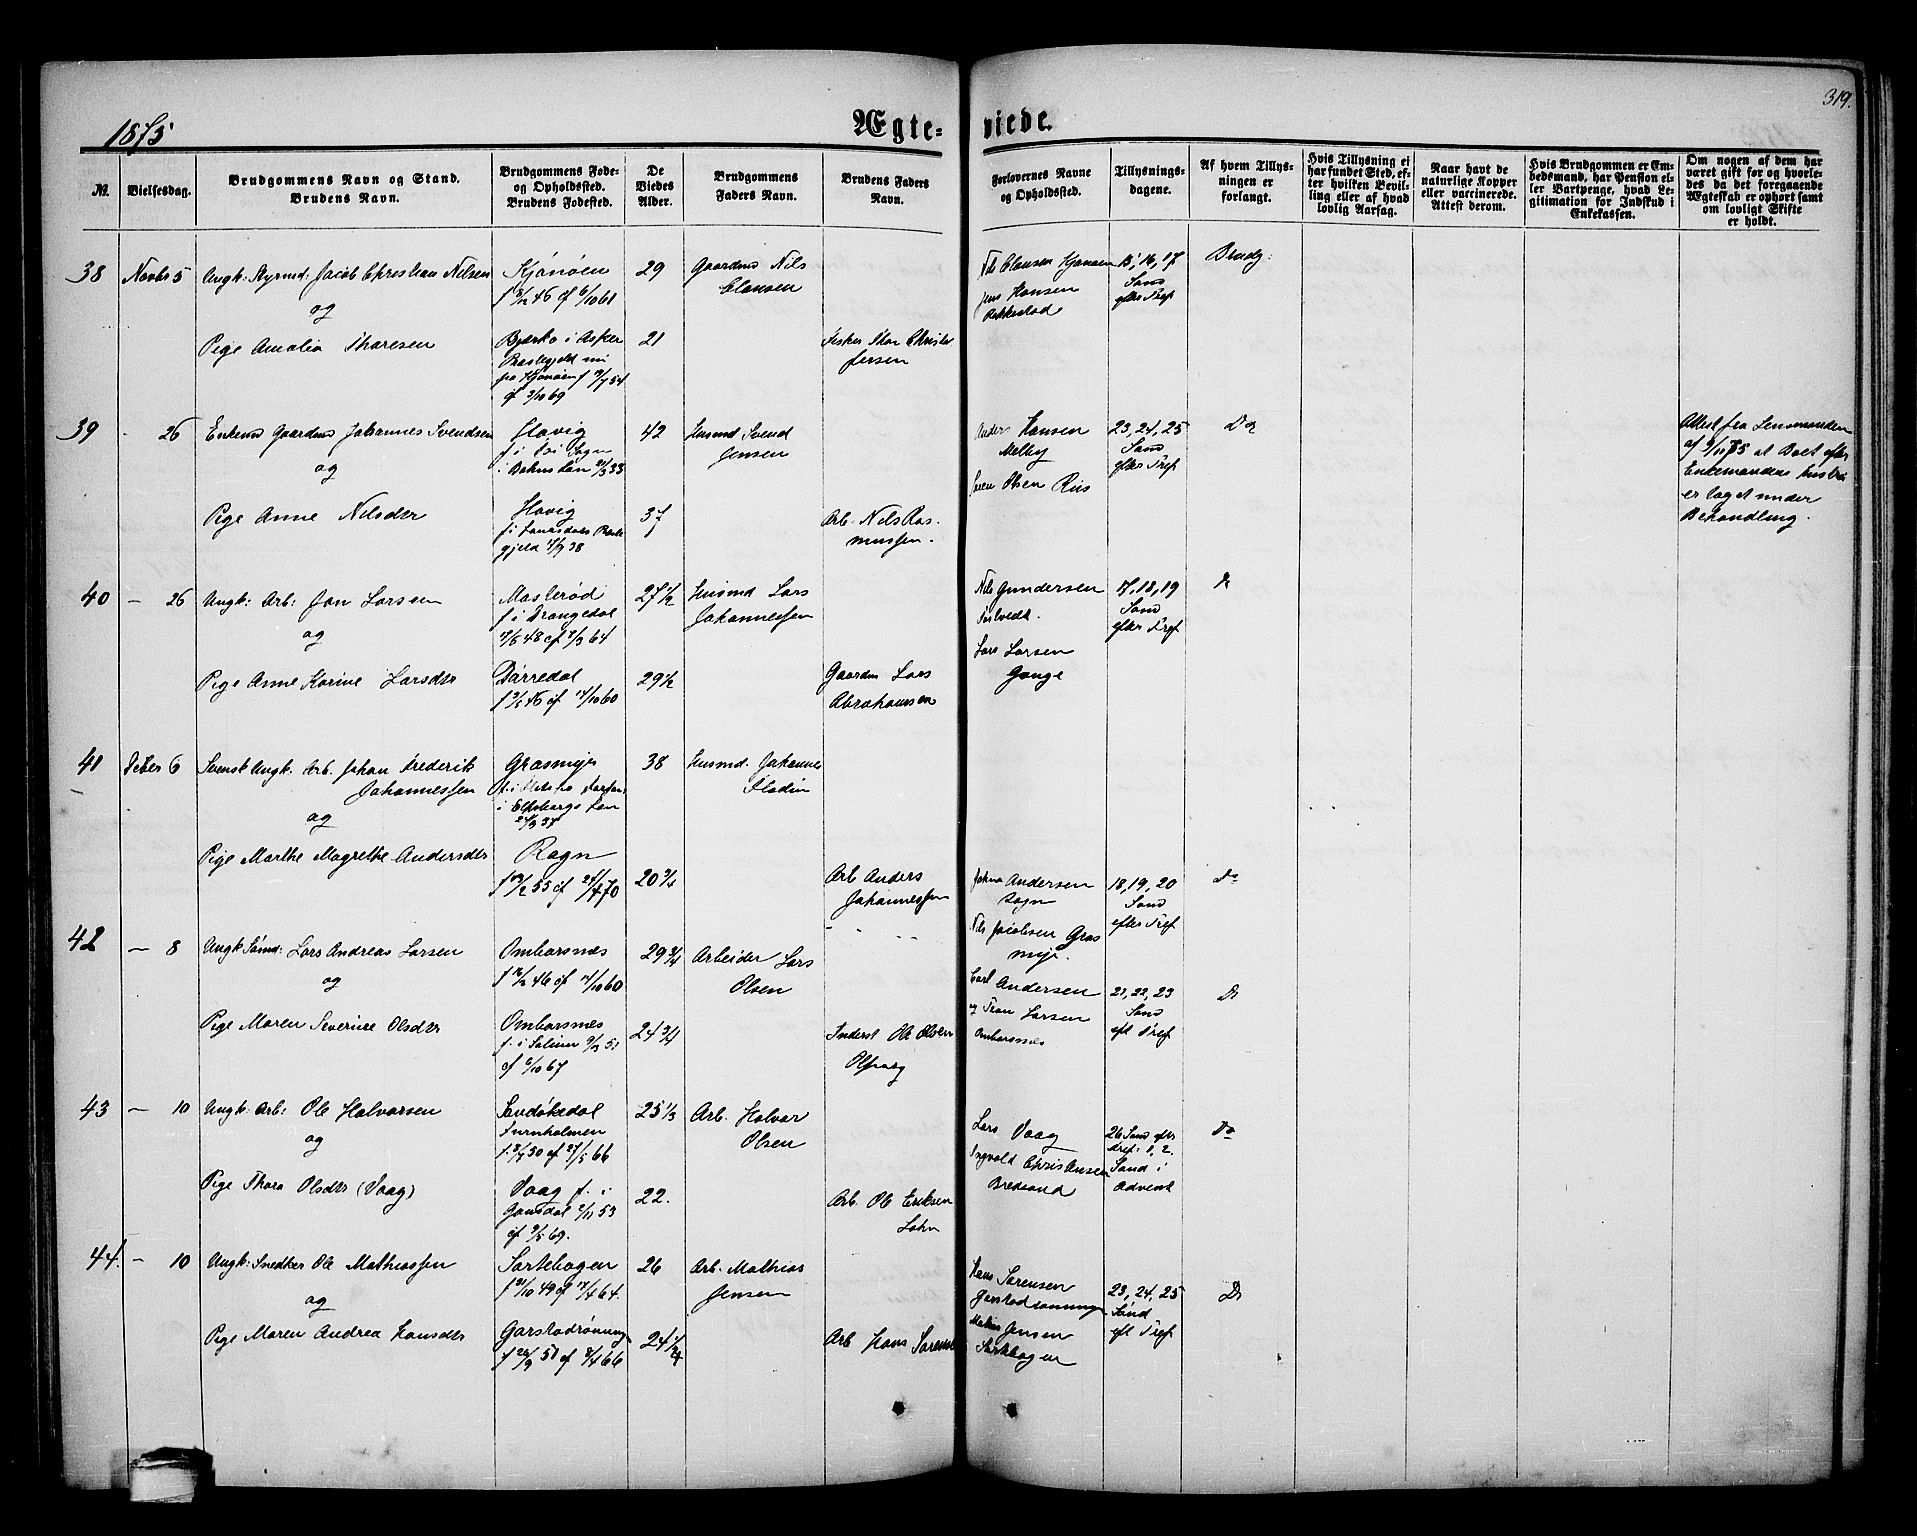 319.
1875
Ægte-
viede.
№.
Vielsesdag.
Brudgommens Navn og Stand.
Brudens Navn.
Brudgommens Føde-
og Opholdssted.
Brudens Fødested.
De
Viedes
Alder.
Brudgommens
Faders Navn.
Brudens Faders
Navn.
Forlovernes Navne
og Opholdssted.
Tillysnings-
dagene.
Af hvem Tillys-
ningen er
forlangt.
Hvis Tillysning ei
har fundet Sted, ef-
ter hvilken Bevil-
ling eller af hvad
lovlig Aarsag.
Naar havt de
naturlige Kopper
eller vaccinerede.
Attest derom.
Hvis Brudgommen er Em-
bedsmand, har Pension el-
ler Vartpenge, hvad Le-
gitimation for Indskud i
Enkekassen.
Om nogen af dem har
været gift før og hvorle-
des da det foregaaende
Ægteskab er ophørt samt
om lovligt Skifte
er holdt.
38 Novbr 5 Ungk: Styrmd: Jacob Christian Nielsen
og
Pige Amalia Thoresen
Kjønøen
29
21
Gaardmd Nils
Clausen
Fisker Thor Christof
fersen
Nils Clausen Kjønøen
Jens Hansen
Rekkestad
15, 16, 17
Sønd
efter Tref
Brudg:
39 - 26 Enkemd Gaardmd Johannes Svendsen
og
Pige Anne Nilsdter
Havig
Havig
42
37
Husmd Svend
Jensen
Arb. Nils Ras-
mussen.
Anders Hansen
Melby
Søren Olsen Riis
23, 24, 25
Sønd
efter Tref
Do
Attest fra Lensmanden
af 9/11 75 at Boet efter
Enkemandens Hustru
er taget under
Behandling.
40 - 26 Ungk: Arb: Jon Larsen
og
Pige Anne Karine Larsdter
f i Drangedal
7/5 48 cf 7/3 64
27 1/2
29 1/2
Husmd Lars
Johannessen
Gaardm Lars
Abrahamsen
Nils Gundersen
Lars Larsen
Gange
17, 18, 19
Sønd
efter Tref
Do
41 Dcbr 6 Svensk Ungk. Arb. Johan Frederik
Johannessen
og
Pige Marthe Magrethe Andersdter
Grasmyr
i Elfsborgs Len
Ragn
38
20 3/4
Husmd. Johannes
Flodin
Arb Anders
Johannessen
Johan Andersen
Nils Jacobsen Gras
myr.
18, 19, 20
Sønd
efter Tref
Do
42 - 8 Ungk Sømd: Lars Andreas Larsen
og
Pige Maren Severine Olsdter
Ombarsnes
cf 14/10 60
Ombarsnes
cf 6/10 67
29 3/4
24 3/4
Arbeider Lars
Olsen
Inderst Ole Olsen
Carl Andersen
Larsen
Ombarsnes
21, 22, 23
Sønd
eft Tref
Do
43 - 10 Ungk: Arb: Ole Halvorsen
og
Pige Thora Olsdter (Vaag)
Sandøkedal
Furuholmen
Vaag f. i
25 1/3
22.
Arb. Halvor
Olsen
Arb. Ole Eriksen
Lars Vaag
Ingvald Christiansen
Bredsand
26 Sønd efter
Tref: 1, 2.
Sønd i
Advent
Do
44. - 10 Ungk: Snedker Ole Mathiassen
og
Pige Maren Andrea Hansdter
Sartebogen
f 21/10 49 cf 17/4 64.
Garstadrønning
26
24 1/4
Arb. Mathias
Jensen
Arb Hans Sørensen
Hans Sørensen
Garstadrønning
Mathias Jensen
Sartebogen
23, 24, 25
Sønd
eft Tref
Do